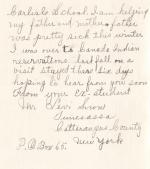 Carlisle School, I am helping
my father and mother, father
was pretty sick this winter
I was over to Canada Indian
reservations last fall on a
visit stayed there six days
hoping to hear from you soon
From your ex-student
Mr. Levi Snow
Tunesassa
Cattaraugus County
P.O Box 65. New York